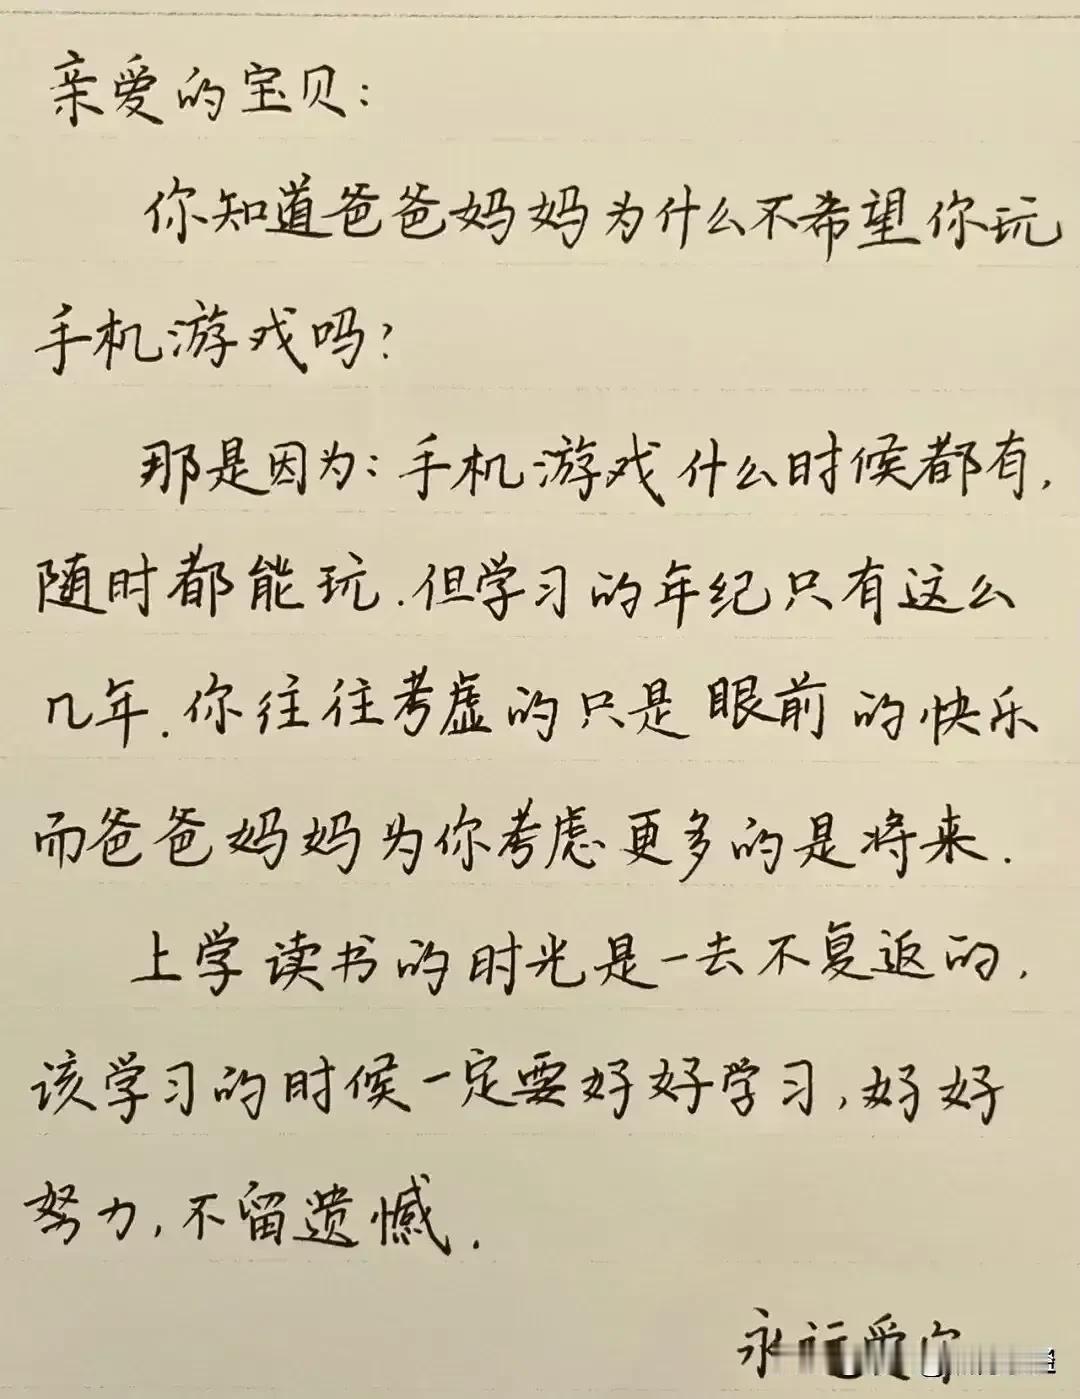 亲爱的宝贝：
你知道爸爸妈妈为什么不希望你玩
手机游戏吗？
那是因为：手机游戏什么时候都有，
随时都能玩.但学习的年纪只有这么
几年.你往往考虑的只是眼前的快乐
而爸爸妈妈为你考虑更多的是将来.
上学读书的时光是一去不复返的，
该学习的时候一定要好好学习，好好
努力，不留遗憾.
永远爱你